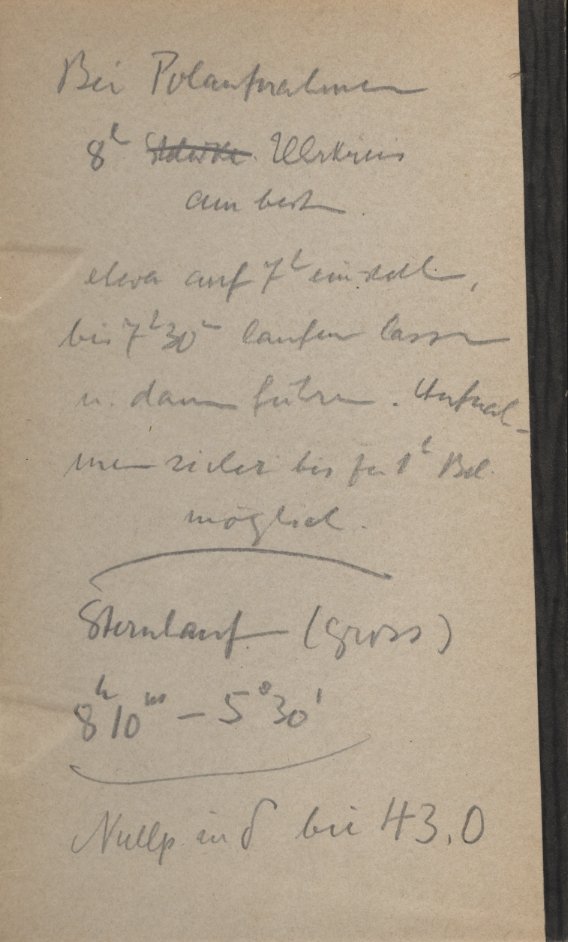 Bei Polaufnahmen
8h Uhrkreis
am besten
etwa auf 7h einstell.,
bis 7h30m laufen lassen
u. dann führen. Aufnah-
men sicher bis 1h Bel.
möglich.
Sternlauf (gross)
8h10m – 5°30'
Nullp in δ bei 43,0